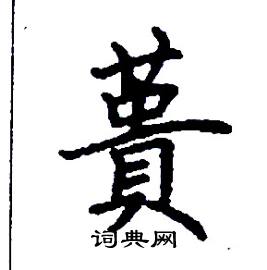 蕢
词典网